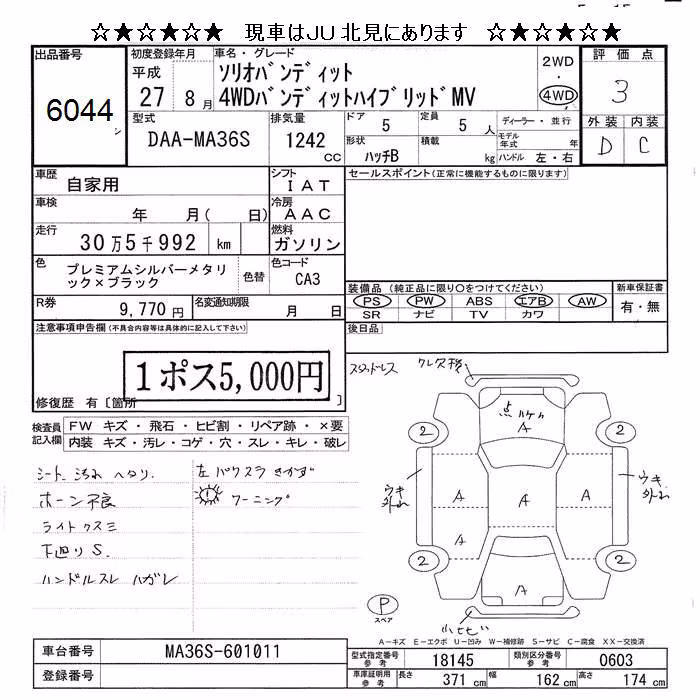 ☆★☆★☆★ 現車はJU 北見にあります ☆★☆★☆★
出品番号
6044
初度登録年月
平成
27 8月
車名・グレード
ソリオバンディット
4WDバンディットハイブリッドMV
2WD
・
4WD
評価点
3
外装 内装
D C
型式
DAA-MA36S
排気量
1242
CC
ドア
5
定員
5 人
ディーラー・並行
形状
ハッチB
積載
kg
モデル年式 年
ハンドル 左・右
車歴
自家用
シフト
IAT
車検
年 月( 日)
冷房
AAC
走行
30万5千992 km
燃料
ガソリン
色
プレミアムシルバーメタリック×ブラック
色替
色コード
CA3
R券
9,770 円
名変通知期限
月 日
セールスポイント(正常に機能するものに限ります)
装備品 (純正品に限り○をつけてください)
PS PW ABS エアB AW
SR ナビ TV カワ
新車保証書
有・無
後日品
注意事項申告欄(不具合内容等は具体的に記入して下さい)
1ポス5,000円
修復歴 有〔箇所 〕
検査員記入欄
FW キズ・飛石・ヒビ割・リペア跡・×要
内装 キズ・汚レ・コゲ・穴・スレ・キレ・破レ
シート 汚れ ヘタリ.
ホーン不良
ライトクスミ
下廻り S.
ハンドルスレ ハガレ
ワーニング
スタッドレス
点ハゲ
A
2 2
ウキ
外れ
A A A
A
ウキ
外れ
2 2
A
P
スペア
A-キズ E-エクボ U-凹み W-補修跡 S-サビ C-腐食 XX-交換済
車台番号
MA36S-601011
登録番号
型式指定番号
参考
18145
類別区分番号
参考
0603
車庫証明用
参考
長さ
371 cm
幅
162 cm
高さ
174 cm